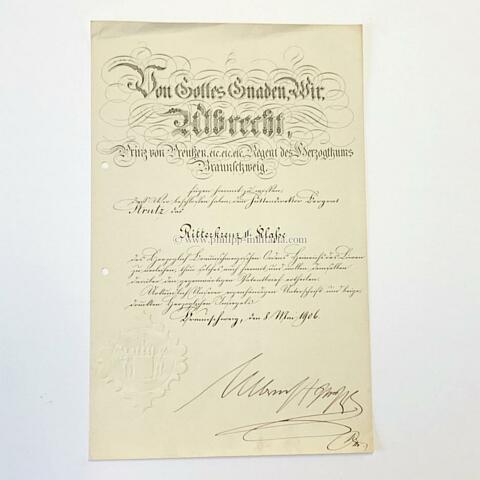 Von Gottes Gnaden, Wir,
Albrecht,
Prinz von Preußen, etc. etc. etc. Regent des Herzogthums
Braunschweig.
fügen hiermit zu wissen,
daß Wir beschlossen haben, dem Hüttendirektor Bergrat
das
Ritterkreuz II. Klasse
www.philipp-militaria.com
des Herzoglich Braunschweigischen Ordens Heinrichs des Löwen
zu verleihen, thun solches auch hiermit und wollen demselben
darüber den gegenwärtigen Patentbrief ertheilen.
Urkundlich Unserer eigenhändigen Unterschrift und beige-
druckten Herzoglichen Insiegels
Braunschweig, den 8. Mai 1906
Albrecht